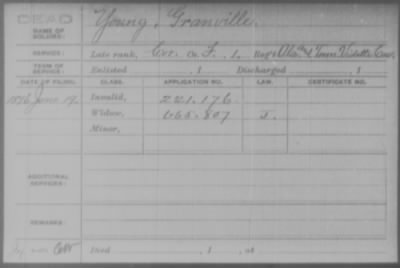 DEAD
NAME OF SOLDIER: Young, Granville.
SERVICE: Late rank, Co. F, 1, Reg't Ala. & Tenn. Vidette Cav,
TERM OF SERVICE: Enlisted , 1 Discharged , 1
DATE OF FILING. CLASS. APPLICATION NO. LAW. CERTIFICATE NO.
1876 June 19. Invalid, 221.176.
Widow, 665.807
Minor,
ADDITIONAL SERVICES:
REMARKS:
Died , 1 , at